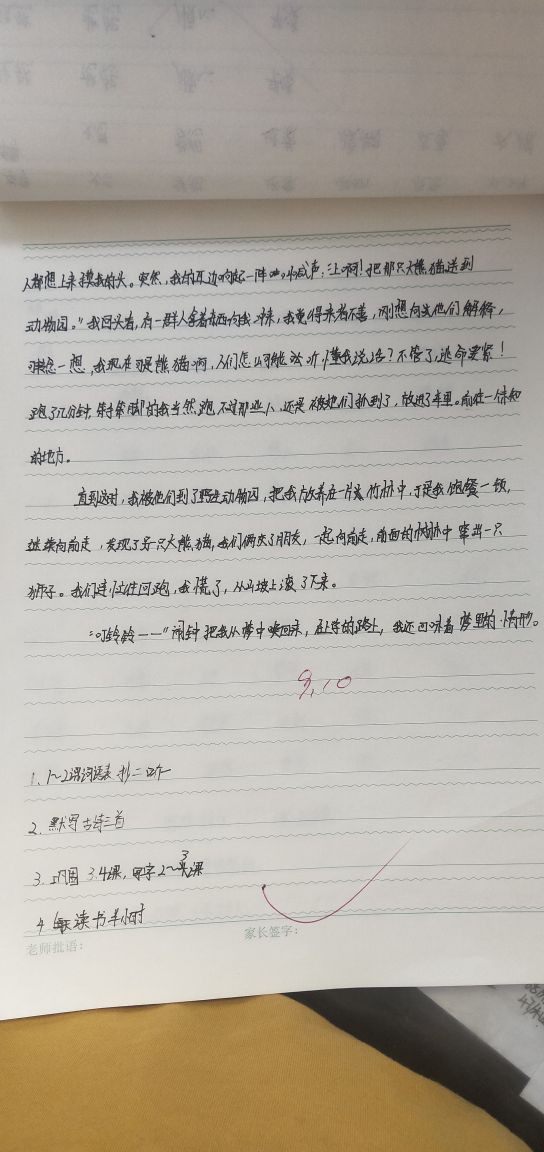 人都想上来摸我的头。突然,我的耳边响起一阵喊声:"上啊!把那只大熊猫送到
动物园。"我回头看,有一群人拿着东西向我冲来,我觉得来者不善,刚想向他们解释,
转念一想,我现在可是熊猫啊,人们怎么可能会听懂我说话?不管了,逃命要紧!
跑了几分钟,笨手笨脚的我当然跑不过那些人,还是被他们抓到了,放进了车里。前往一个未知
的地方。
直到这时,我被他们到了野生动物园,把我放养在一片大竹林中,于是我饱餐一顿,
继续向前走,发现了另一只大熊猫,我们俩成了朋友,一起向前走,前面的树林中窜出一只
狮子。我们连忙往回跑,我慌了,从山坡上滚了下来。
"叮铃铃——"闹钟把我从梦中唤回来,在上学的路上,我还回味着梦里的情形。
9.10
1、1~2课词语表抄二
2、默写古诗三首
3、巩固3.4课,写字2~3课
4、每天读书半小时
老师批语:
家长签字: